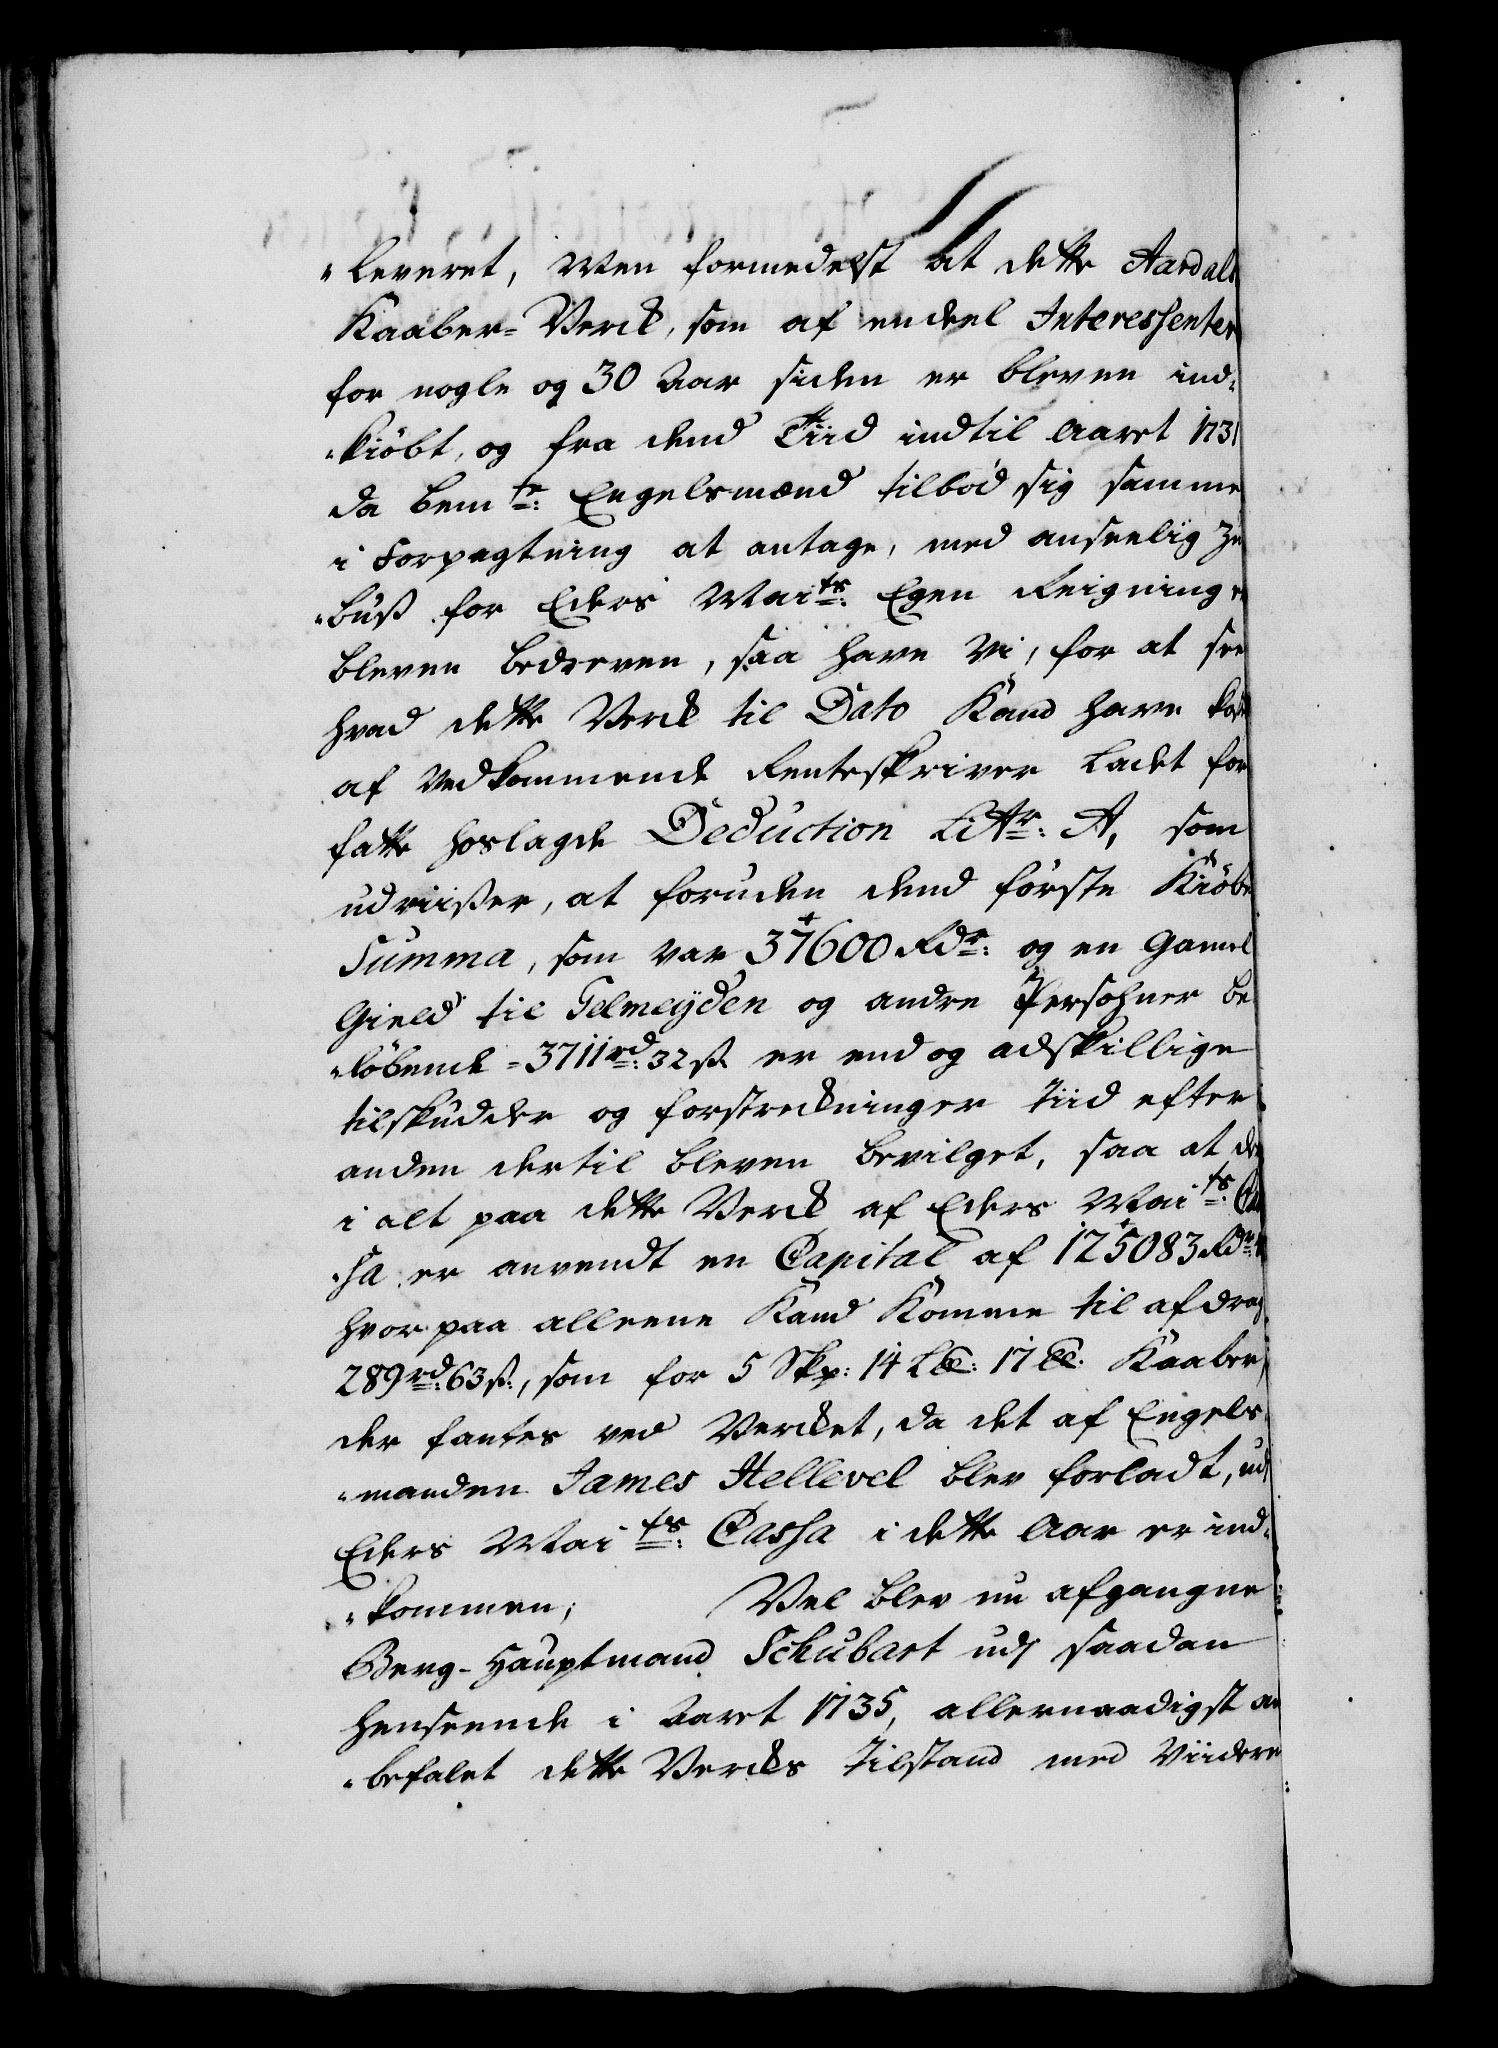 "leveret, Men formedelst at dette Aardals
Kaaber-Verck, som af endeel Interessenter
for nogle og 30 Aar siden er bleven ind-
"kiöbt, og fra dend Tiid indtil Aaret 1731
da bemte: Engelsmænd tilbød sig samme
i Forpagtning at antage, med anseelig Zu
"buß for Eders Maits: Egen Reigning er
bleven bedreven, saa have Vi, for at see
hvad dette Verck til Dato Kand have kost
af Vedkommende Renteskriver ladet for
fatte hoslagde Deduction Littr: A, som
udviißer, at foruden dend første Kiöbe
Summa, som var 37600 Rdr: og en Gamel
Gield til Telmeÿden og andre Persohner be
"løbende = 3711rd: 32ß er end og adskillige
tilskudder og forstreckninger Tiid efter
anden dertil bleven bevilget, saa at der
i alt paa dette Verck af Eders Maits: Cas
"sa er anvendt en Capital af 125083 Rdr:
hvorpaa alleene Kand Komme til afdrag
289rd: 63ß:, som for 5 Skp: 14 L℔: 17 ℔: Kaaber,
der fantes ved Vercket, da det af Engels-
"manden James Hellevel blev forladt, udj
Eders Maits: Cassa i dette Aar er ind-
"kommen; Vel blev nu afgangne
Berg-Hauptmand Schubart udj saadan
henseende i Aaret 1735, allernaadigst an
"befalet dette Vercks Tilstand med Viidere